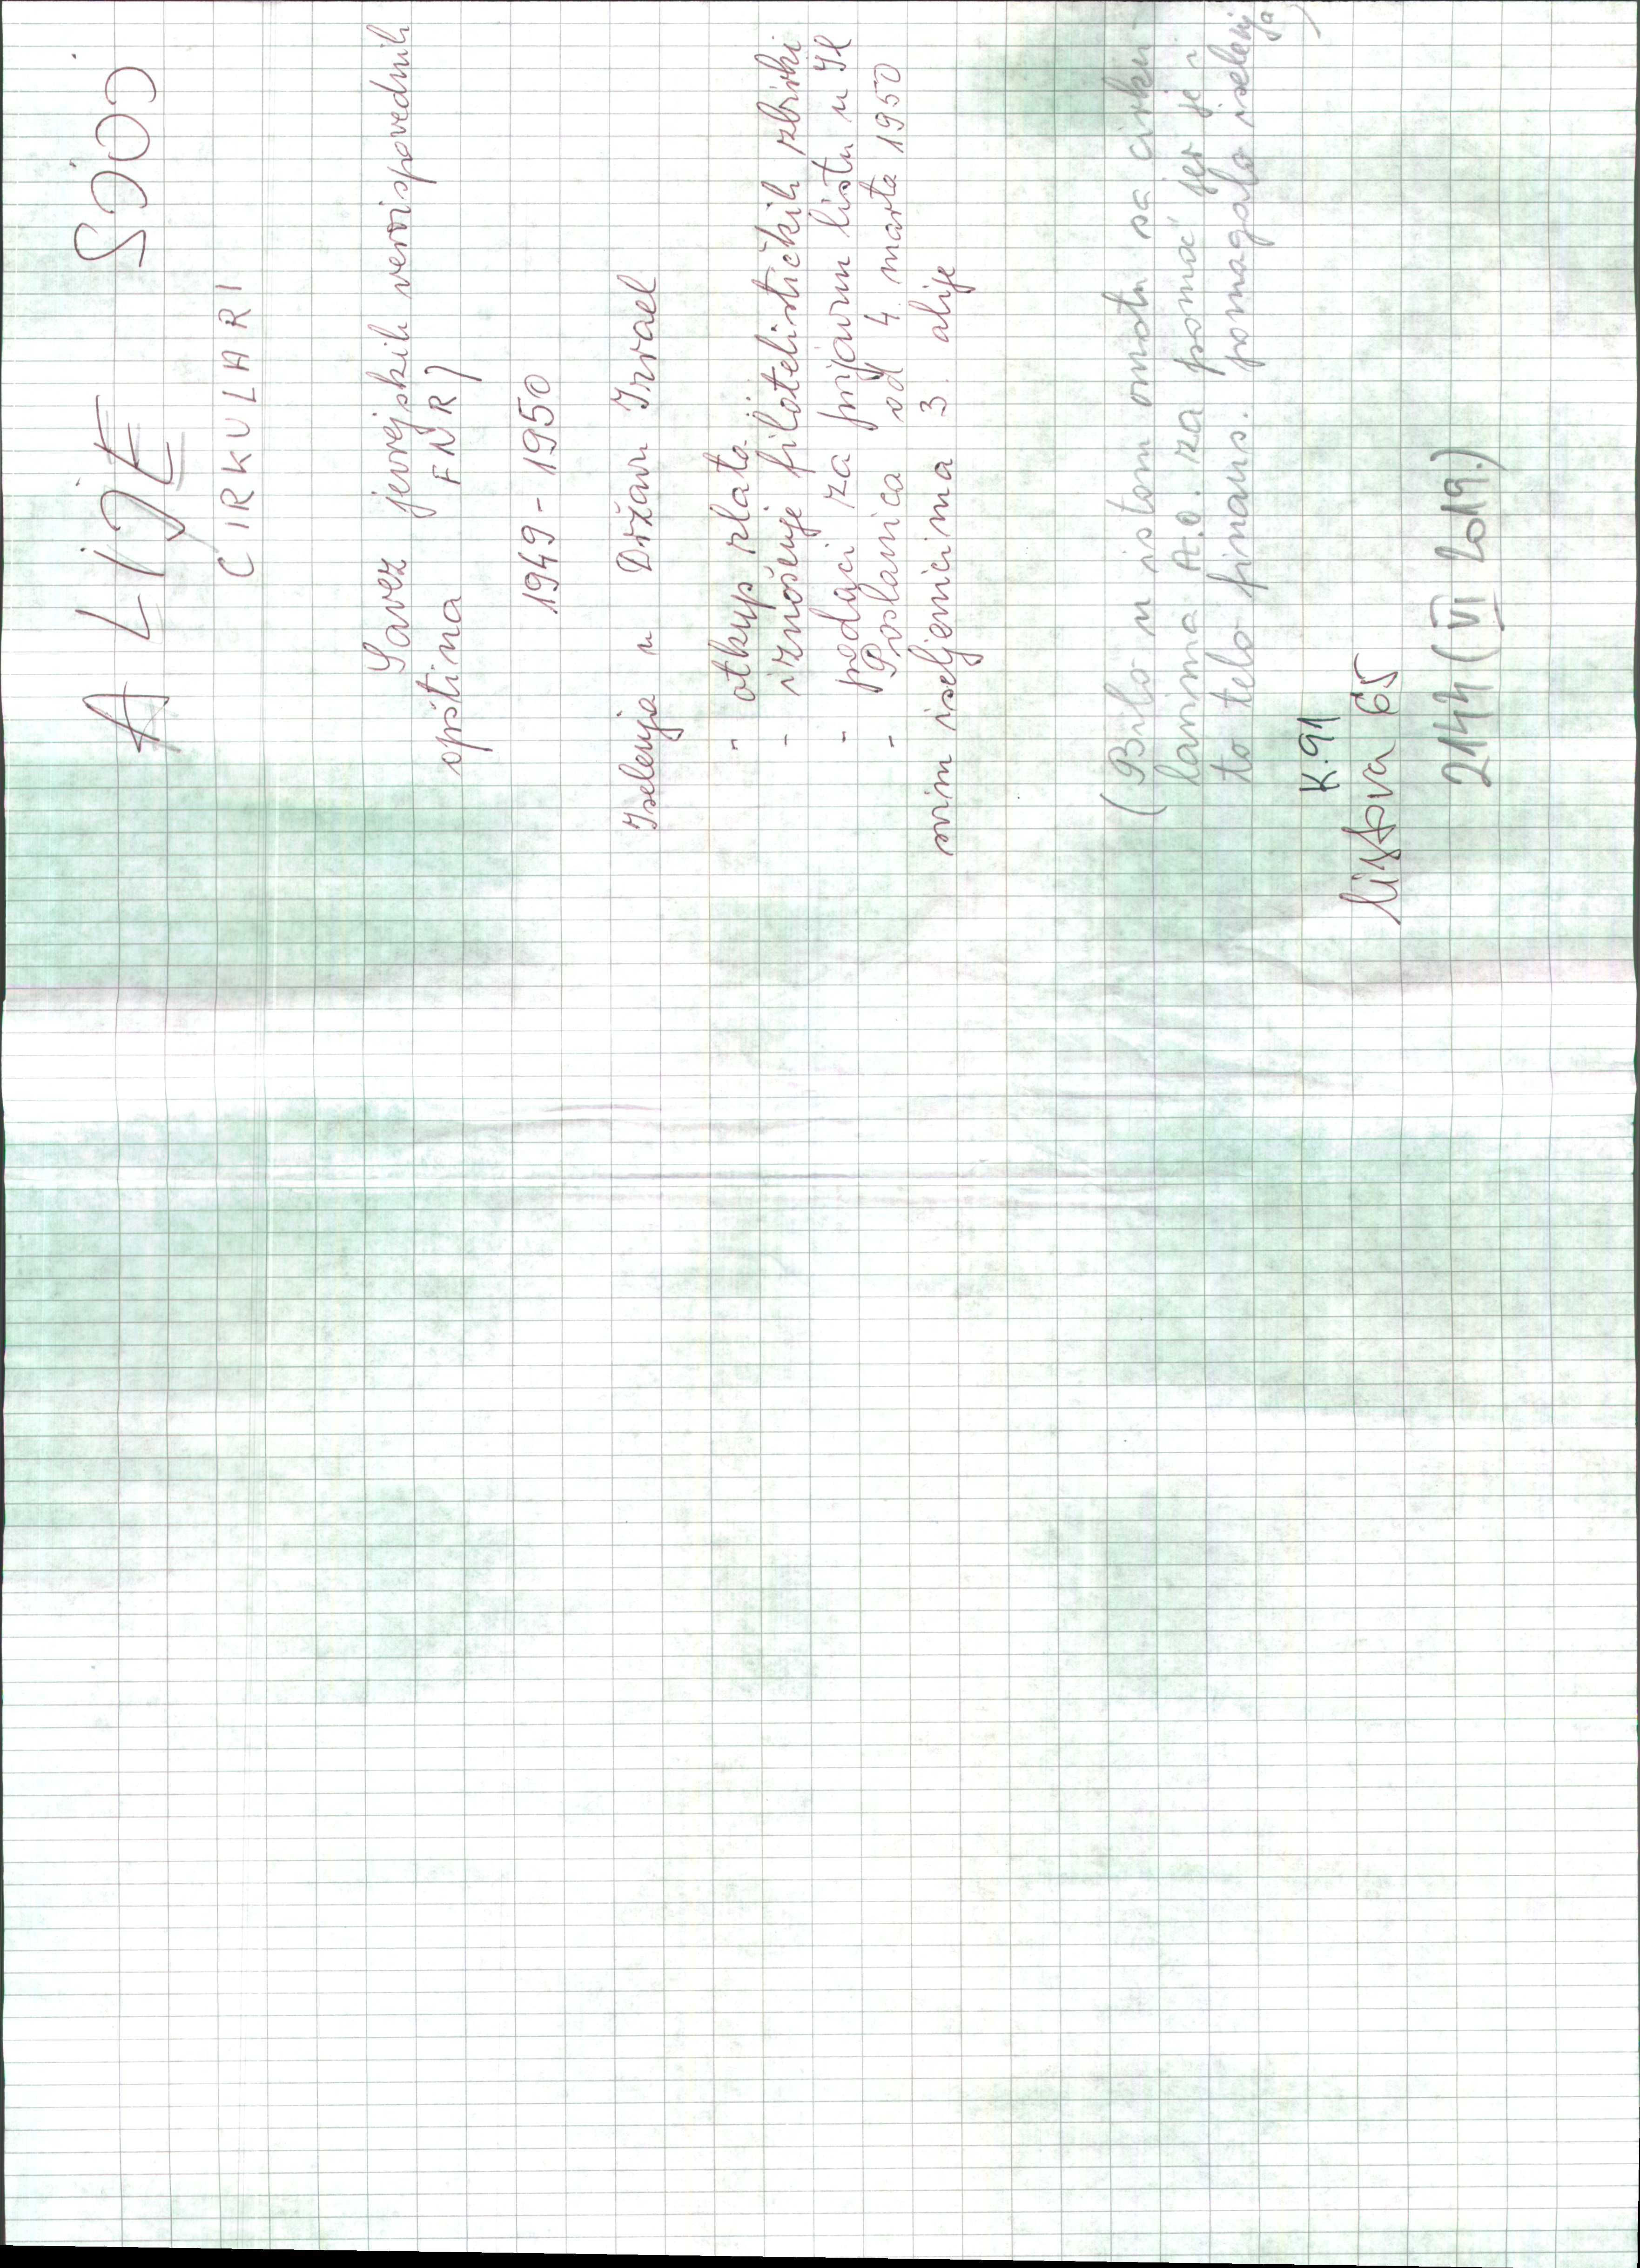 ALIJE SJOJ
CIRKULARI
Savez jevrejskih veroispovednih
opština FNRJ
1949-1950
Iselenja u Državu Izrael
- otkup zlata
- iznošenje filatelističkih zbirki
- podaci za prijavnu listu u Il
- Poslanica od 4. marta 1950
svim iseljenicima 3. alije
(Bilo u istom omotu sa cirku-
larima A.O. za pomoć jer je i
to telo finans. pomagalo iselenja)
K.91
listova 65
2144 (VI 2019.)